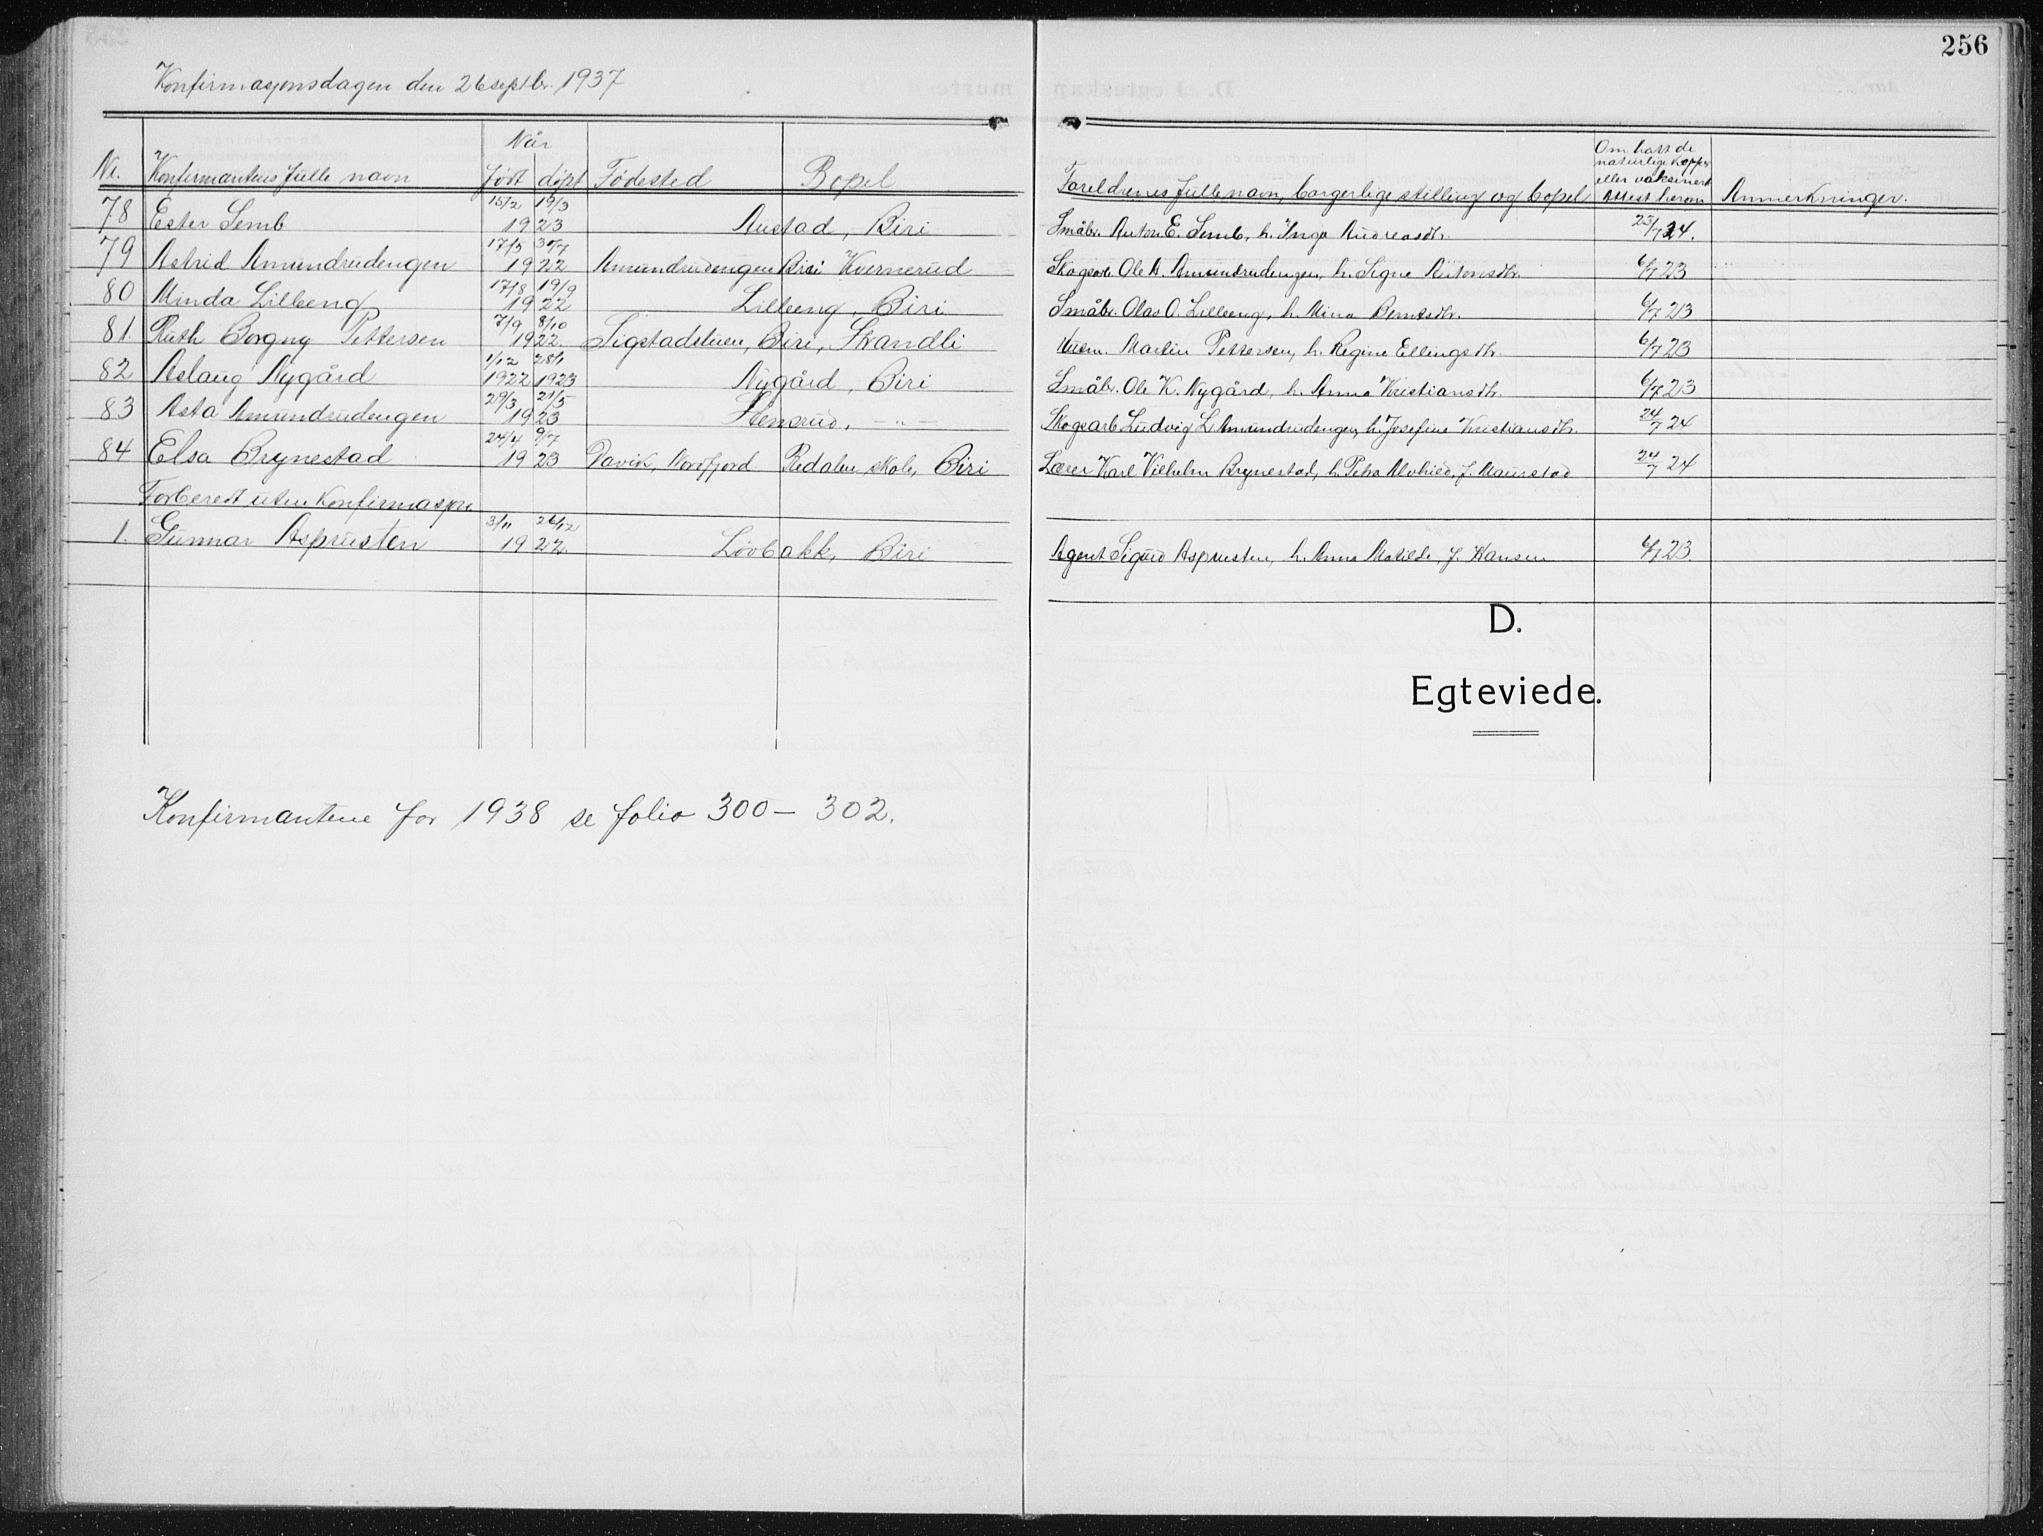 256
Konfirmasjonsdagen den 26 septbr. 1937
Nr. Konfirmantens fulle navn Når født døpt Fødested Bopel Foreldrenes fulle navn, borgerlige stilling og bopel Om hatt de naturlige kopper eller vaksinert Attest herom Anmerkninger.
78 Ester Semb 15/2 19/3 1923 Austad, Biri Småbr. Anton E. Semb, h. Inga Andreasdtr. 23/7 24.
79 Astrid Amundrudengen 17/5 30/7 1922 Amundrudengen Biri Kvernerud Skogsarb. Ole A. Amundrudengen, h. Signe Antonsdtr. 6/7 23
80 Minda Lilleeng 17/8 19/9 1922 Lilleeng, Biri Småbr. Olav O. Lilleeng, h. Mina Berntsdtr. 6/7 23
81. Ruth Borgny Pettersen 7/9 8/10 1922. Sigstadstuen, Biri, Strandli Martin Pettersen, h. Regine Ellingsdtr. 6/7 23
82 Aslaug Nygård 1/12 28/1 1922 1923 Nygård, Biri Småbr. Ole K. Nygård, h. Anna Kristiansdtr. 6/7 23
83 Asta Amundrudengen 29/3 21/5 1923 Stenerud, -"- Skogsarb Ludvig L Amundrudengen, h. Josefine Kristiansdtr. 24/7 24
84 Elsa Brynestad 24/4 9/7 1923 Davik, Nordfjord Redalen skole, Biri Lærer Karl Vilhelm Brynestad, h. Petra Alvhild, f. Maurstad 24/7 24
Forberedt uten konfirmasjon
1. Gunnar Asprusten 3/11 26/12 1922 Løvbakk, Biri Agent Sigurd Asprusten, h. Anna Matilde, f. Hansen 6/7 23.
D.
Egteviede.
Konfirmantene for 1938 se folio 300 - 302.